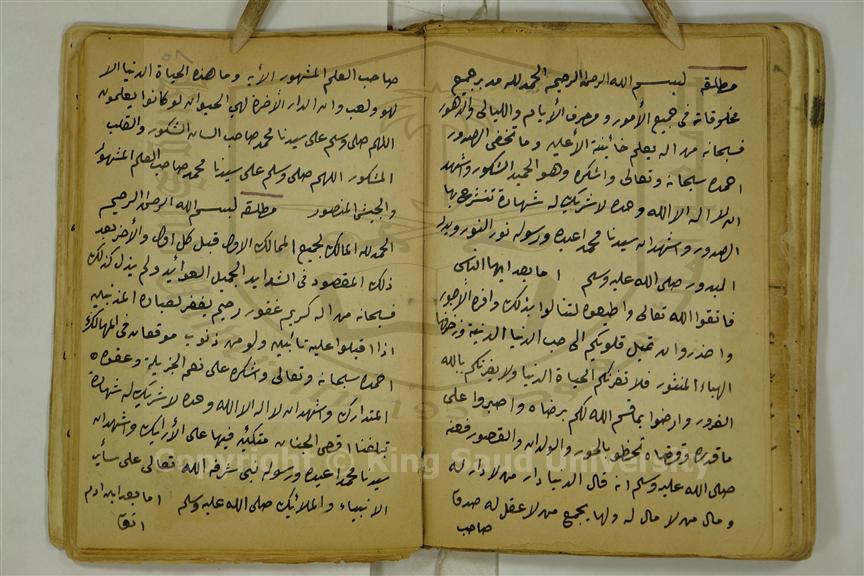 مطلقه لبسم الله الرحمن الرحيم الحمد لله مدبر جميع
مخلوقاته في جميع الأمور ومصرف الأيام والليالي والدهور
فسبحانه من اله يعلم خائينة الأعين وما تخفى الصدور
احمده سبحانه وتعالى واشكره وهو الحميد الشكور واشهد
ان لا اله الا الله وحده لا شريك له شهادة تنشرح بها
الصدور واشهد ان سيدنا محمدا عبده ورسوله نور النور وبدر
البدور صلى الله عليه وسلم اما بعد ايها الناس
فاتقوا الله تعالى واطيعوه لتنالوا بذلك وافره الأجور
واحذروا ان تميل قلوبكم الى حب الدنيا الدنية وزخرفها
الهباء المنثور فلا تغرنكم الحياة الدنيا ولا يغرنكم بالله
الغرور وارضوا بما قسم الله لكم برضاه واصبروا على
ما قدره وقضاه تحظو بالحور والولدان والقصور فعنه
صلى الله عليه وسلم انه قال الدنيا دار من لا دار له
ومال من لا مال له ولها يجمع من لا عقل له صدق
صاحب
صاحب العلم المشهور الأيه وما هذه الحياة الدنيا الا
لهو ولعب وان الدار الأخره لهي الحيوان لو كانوا يعلمون
اللهم صلى وسلم على سيدنا محمد صاحب السان الشكور والقلب
المشكور اللهم صلى وسلم على سيدنا محمد صاحب العلم المشهور
والجيش المنصور مطلقه لبسم الله الرحمن الرحيم
الحمد لله المالك لجميع الممالك الاول قبل كل اول والأخر بعد
ذلك المقصود في الشدايد الجميل العوائيد ولم يزل كذلك
فسبحانه من اله كريم غفور رحيم يغفر لعباده المذنبين
اذا اقبلوا عليه تائيبين ولو من ذنوب موقعات في المهالك
احمده سبحانه وتعالى واشكره على نعمه الجزيلة وعفوه
المتدارك واشهد ان لا اله الا الله وحده لا شريك له شهادة
تبلغنا اقصى الجنان متكئن فيها على الأرائيك واشهد ان
سيدنا محمدا عبده ورسوله نبي شرفه الله تعالى على سائر
الانبياء والملائيك صلى الله عليه وسلم اما بعد ابن ادم
اتق
Copyright © King Saud University
1957